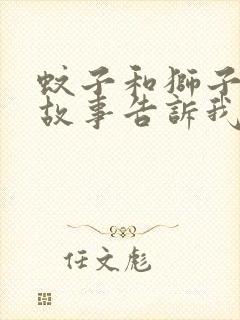 蚊子和獅子
故事告訴我
任文彪